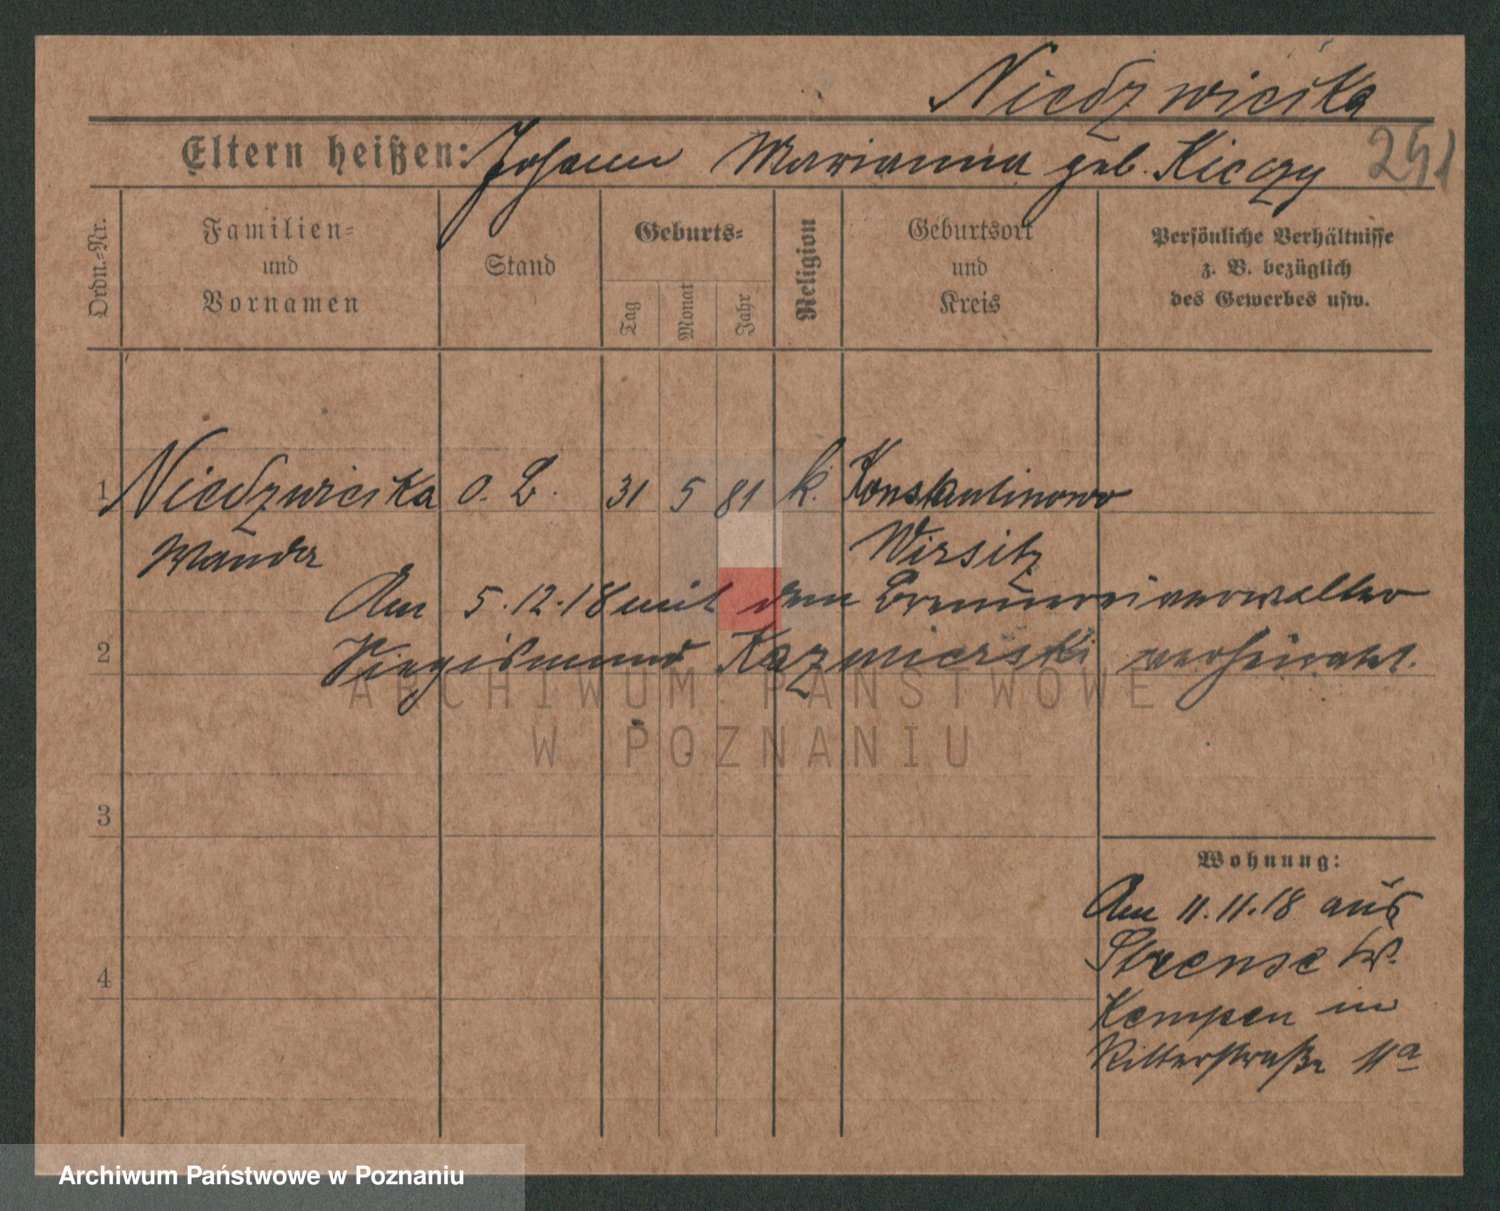 Niedzwieska
Eltern heißen: Johann Marianna geb. Kiczy 251
Ordn.-Nr.
Familien-
und
Vornamen
Stand
Geburts-
Tag
Monat
Jahr
Religion
Geburtsort
und
Kreis
Persönliche Verhältnisse
z. B. bezüglich
des Gewerbes usw.
1 Niedzwieska o. B. 31 5 81 k. Konstantinowo
Wanda Wirsitz
Am 5.12.18 mit dem Brennereiverwalter
2 Siegismund Kazmierski verheiratet.
ARCHIWUM PAŃSTWOWE
W POZNANIU
3
Wohnung:
Am 11.11.18 aus
4 Strense Kr.
Kempen in
Ritterstraße 11a
Archiwum Państwowe w Poznaniu